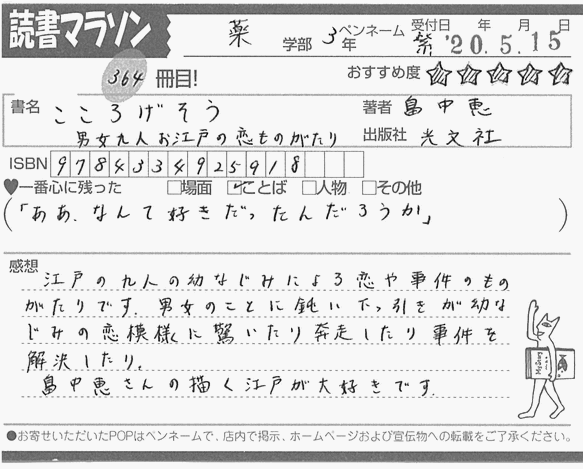 読書マラソン
薬 学部 3年 ペンネーム 紫 受付日 年 月 日
'20.5.15
364 冊目!
おすすめ度 ☆☆☆☆☆
書名 こころげそう
男女九人お江戸の恋ものがたり
著者 畠中恵
出版社 光文社
ISBN 9784334925918
♥一番心に残った □場面 ☑ことば □人物 □その他
(「ああ、なんて好きだったんだろうか」)
感想
江戸の九人の幼なじみによる恋や事件のもの
がたりです。男女のことに鈍い下っ引きが幼な
じみの恋模様に驚いたり奔走したり事件を
解決したり。
畠中恵さんの描く江戸が大好きです。
●お寄せいただいたPOPはペンネームで、店内で掲示、ホームページおよび宣伝物への転載をご了承ください。